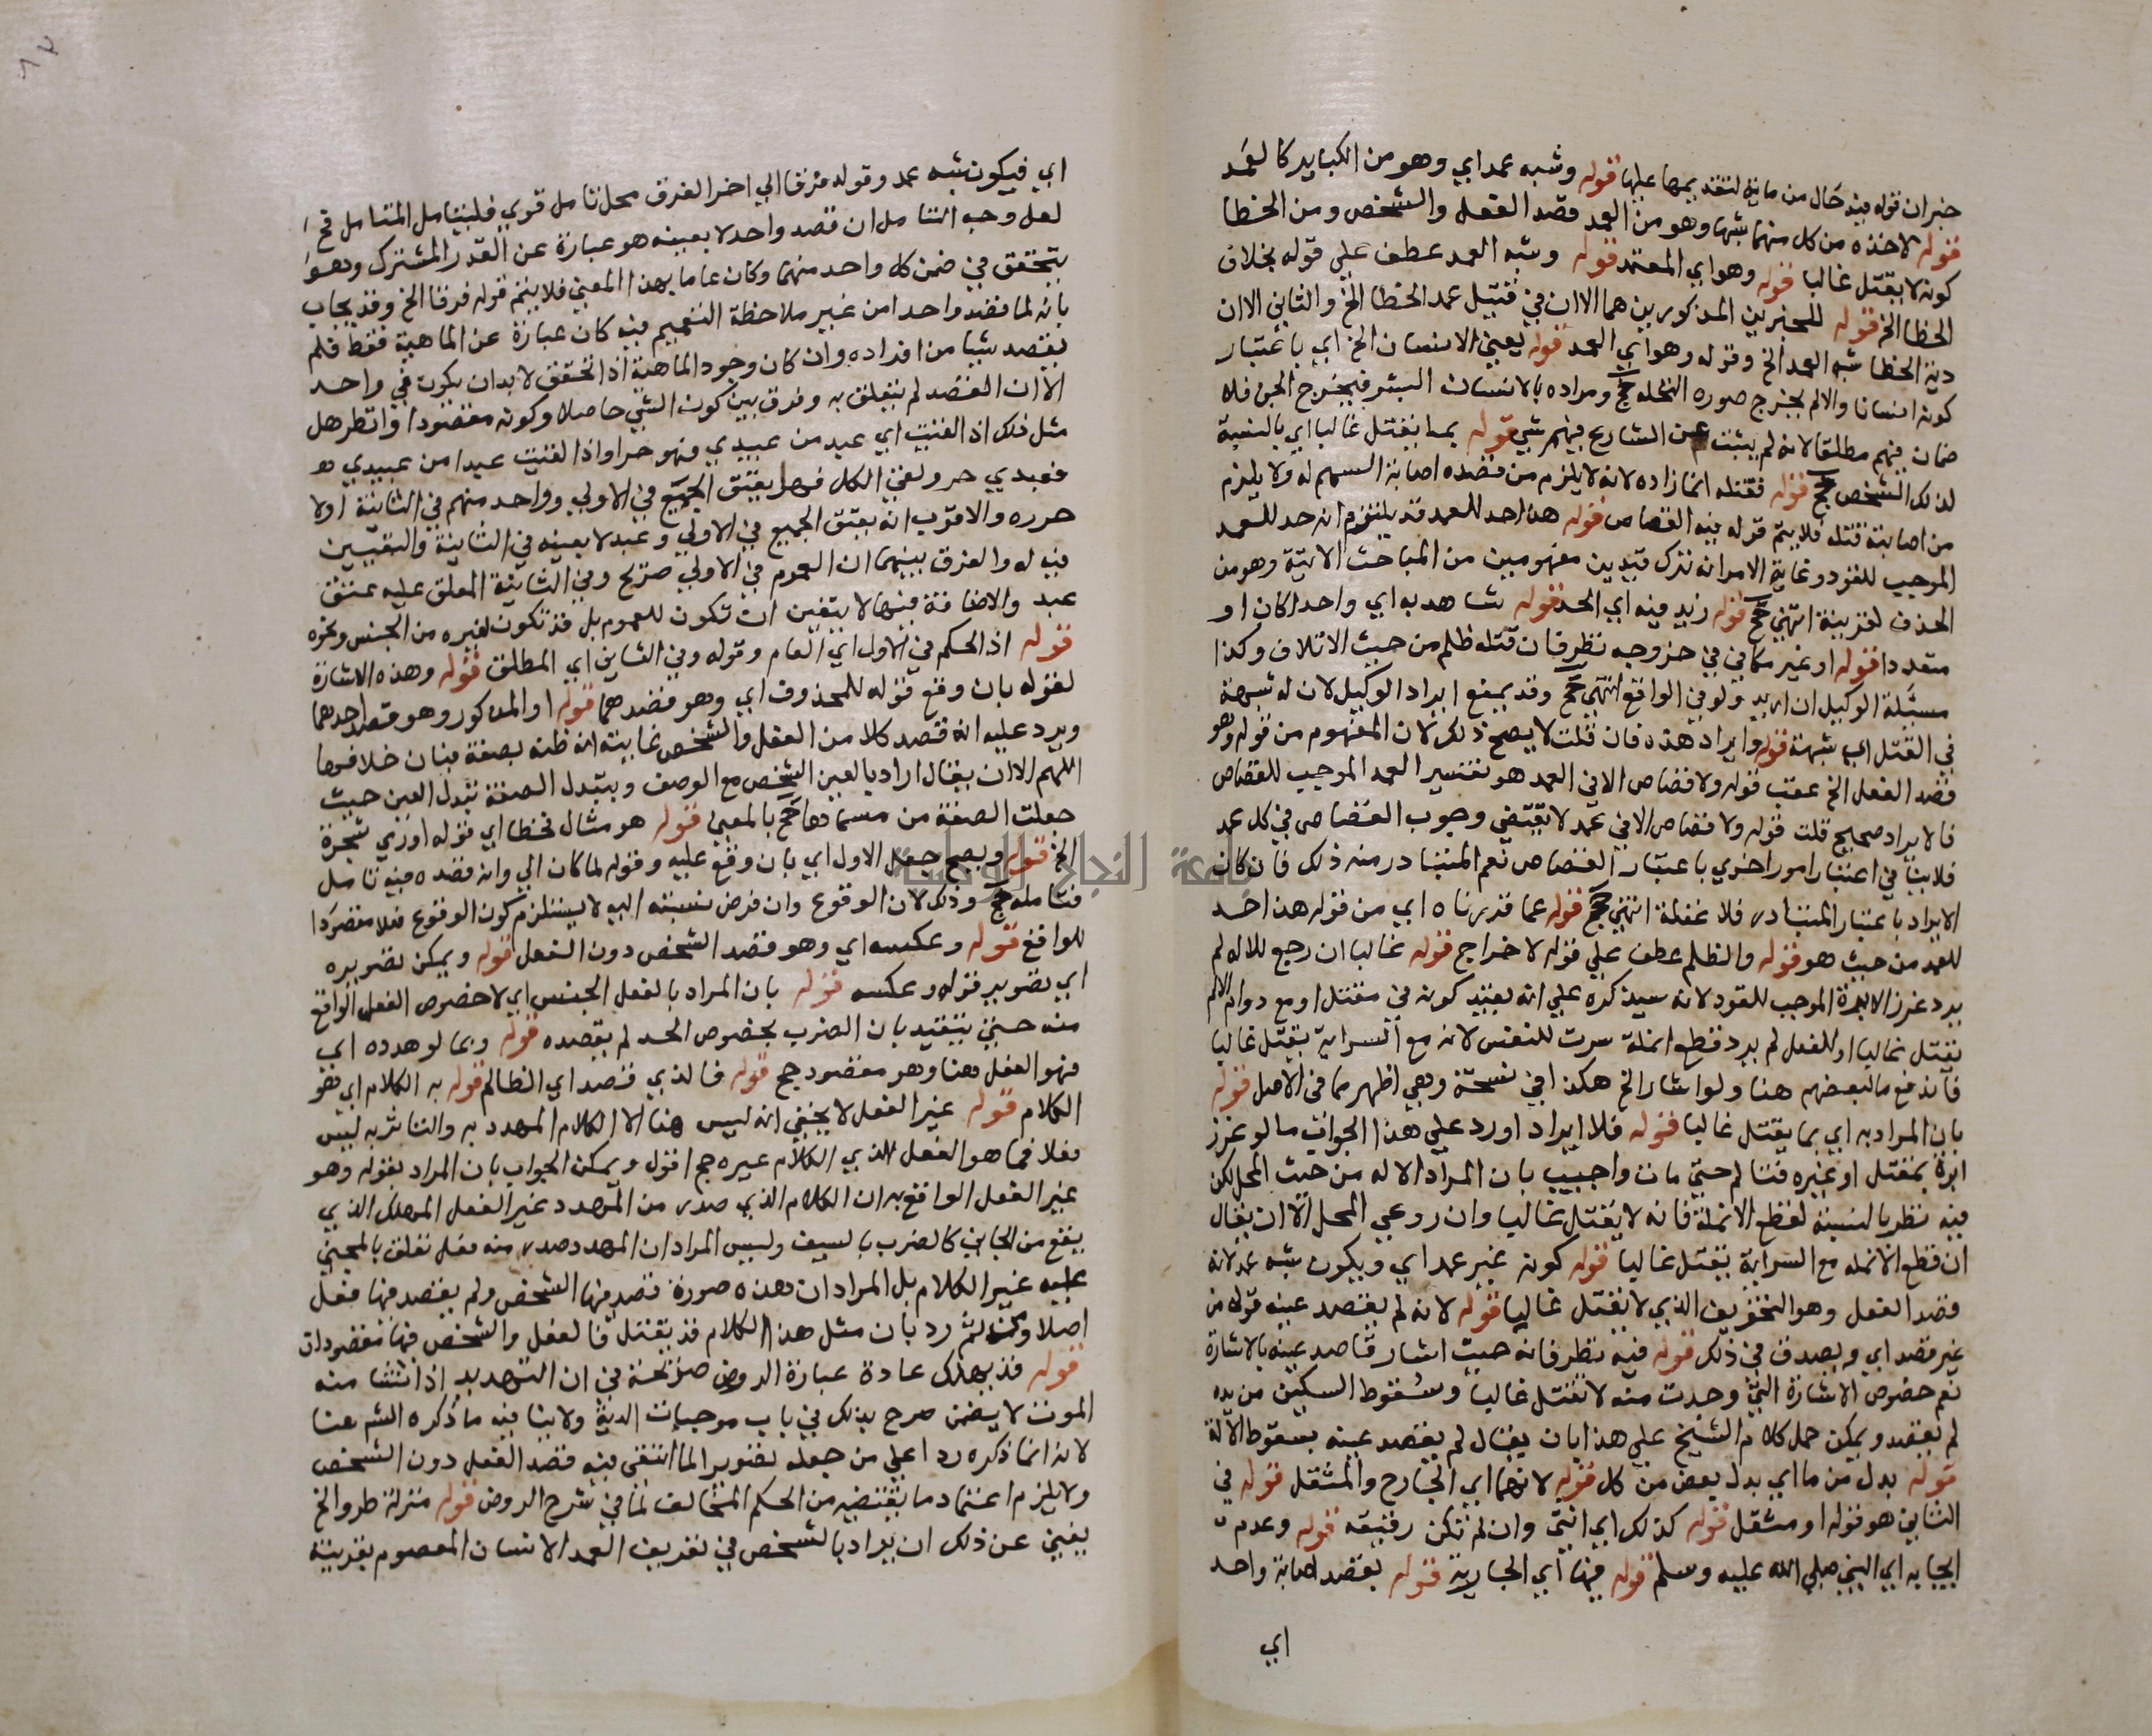 خبر ان قوله فيه حال من ماية لتقديمها عليها قوله وشبه عمد اي وهو من الكباير كالعمد
قوله لاخذه من كل منهما شبها وهو من العمد قصد الفعل والشخص ومن الخطا
كونه لا يقتل غالبا قوله وهو اي المعتمد قوله وشبه العمد عطف علي قوله بخلاف
الخطا الخ قوله للخبرين المذكورين هما الا ان في قتيل عمد الخطا الخ والثاني الا ان
دية الخطا شبه العمد الخ وقوله وهو اي العمد قوله يعني الانسان الخ اي باعتبار
كونه انسانا والا لم يخرج صوره النخله حج ومراده بالانسان البشر فيخرج الجن فلا
ضمان فيهم مطلقا لانه لم يثبت عن الشارع فيهم شي قوله بما يقتل غالبا اي بالنسبة
لذلك الشخص حج قوله فقتله انما زاده لانه لا يلزم من قصده اصابة السهم له ولا يلزم
من اصابته قتله فلا يتم قوله فيه القصاص قوله هذا حد للعمد قد يلتزم انه حد للعمد
الموجب للقود وغاية الامر انه ترك قيدين مفهومين من المباحث الاتية وهو من
الحذف لقرينة انتهي حج قوله زيد فيه اي الحد قوله شاهد به اي واحدا كان او
متعددا قوله او غير مكافي في خروجه نظر فان قتله ظلم من حيث الاتلاف وكذا
مسئلة الوكيل ان اريد ولو في الواقع انتهي حج وقد يمنع ايراد الوكيل لان له شبهة
في القتل اي شبهة قوله وايراد هذه فان قلت لا يصح ذلك لان المفهوم من قوله وهو
قصد الفعل الخ عقب قوله ولا قصاص الا في العمد هو تفسير العمد الموجب للقصاص
فالايراد صحيح قلت قوله ولا قصاص الا في عمد لا تقتضي وجوب القصاص في كل عمد
فلا ينافي اعتبار امور اخري باعتبار القصاص نعم المتبادر منه ذلك فان كان
الايراد باعتبار المتبادر فلا غفلة انتهي حج قوله عما قدرناه اي من قوله هذا حد
للعمد من حيث هو قوله والظلم عطف علي قوله لاخراج قوله غالبا ان رجع للاله لم
يرد غرز الابرة الموجب للقود لانه سيذكره علي انه يفيد كونه في مقتل او مع دوام الالم
يقتل غالبا او للفعل لم يرد قطع انملة سرت للنفس لانه مع السراية يقتل غالبا
فاندفع ما لبعضهم هنا ولو اشار الخ هكذا في نسخة وهي اظهر مما في الاصل قوله
بان المراد به اي بما يقتل غالبا قوله فلا ايراد اورد علي هذا الجواب ما لو غرز
ابرة بمقتل او غيره فتالم حتي مات واجيب بان المراد الاله من حيث المحل لكن
فيه نظر بالنسبة لقطع الانملة فانه لا يقتل غالبا وان روعي المحل الا ان يقال
ان قطع الانمله مع السراية يقتل غالبا قوله كونه غير عمد اي ويكون شبه عمد لانه
قصد الفعل وهو التخويف الذي لا يقتل غالبا قوله لانه لم يقصد عينه قوله من
غير قصد اي ويصدق في ذلك قوله فيه نظر فانه حيث اشار قاصد عينه بالاشارة
نعم خصوص الاشارة التي وجدت منه لا تقتل غالبا وسقوط السكين من يده
لم يقصد ويمكن حمل كلام الشيخ علي هذا بان يقال لم يقصد عينه بسقوط الآلة
قوله بدل من ما اي بدل بعض من كل قوله لانهما اي الجارح والمثقل قوله في
الثاني هو قوله او مثقل قوله كذلك اي انثي وان لم تكن رقيقه قوله وعدم
ايجابه اي النبي صلي الله عليه وسلم قوله فيها اي الجارية قوله بقصد اصابة واحد
اي
اي فيكون شبه عمد وقوله فرقا الي اخر الفرق محل تامل قوي فليتامل المتامل حج
لعل وجه التامل ان قصد واحد لا بعينه هو عبارة عن القدر المشترك وهو
يتحقق في ضمن كل واحد منهما وكان عاما بهذا المعني فلا يتم قوله فرقا الخ وقد يجاب
بانه لما قصد واحدا من غير ملاحظة التعميم فيه كان عبارة عن الماهية فقط فلم
يقصد شيا من افراده وان كان وجود الماهية اذا تحقق لا بد ان يكون في واحد
الا ان القصد لم يتعلق به وفرق بين كون الشي حاصلا وكونه مقصودا وانظر هل
مثل ذلك اذا لقيت اي عبد من عبيدي فهو حر او اذا لقيت عبدا من عبيدي هو
فعبدي حر ولقي الكل فهل يعتق الجميع في الاولي وواحد منهم في الثانية اولا
حرره والاقرب انه يعتق الجميع في الاولي وعبد لا بعينه في الثانية والتعيين
فيه له والفرق بينهما ان العموم في الاولي صريح وفي الثانية المعلق عليه عتق
عبد والاضافة فيها لا يتعين ان تكون للعموم بل قد تكون لغيره من الجنس ونحوه
قوله اذ الحكم في الاول اي العام وقوله وفي الثاني اي المطلق قوله وهذه الاشارة
لقوله بان وقع قوله للمحذوف اي وهو قصدهما قوله او المذكور وهو قصد احدهما
ويرد عليه انه قصد كلا من الفعل والشخص غايته انه ظنه بصفة فبان خلافها
اللهم الا ان يقال اراد بالعين الشخص مع الوصف ويتبدل الصفة تبدل العين حيث
جعلت الصفة من مسماها حج بالمعني قوله هو مثال لخطا اي قوله او رمي شجرة
الخ قوله ويصح جعل الاول اي بان وقع عليه وقوله لما كان الي وانه قصده فيه تامل
فتامله حج وذلك لان الوقوع وان فرض نسبته اليه لا يستلزم كون الوقوع فعلا مقصودا
للواقع قوله وعكسه اي وهو قصد الشخص دون الفعل قوله ويمكن تصويره
اي تصوير قوله وعكسه قوله بان المراد بالفعل الجنس اي لا خصوص الفعل الواقع
منه حتي يتقيد بان الضرب بخصوص الحد لم يقصده قوله وبما لو هدده اي
فهو الفعل هنا وهو مقصود حج قوله فالذي قصد اي الظالم قوله به الكلام اي هو
الكلام قوله غير الفعل لا يخفي انه ليس هنا الا الكلام المهدد به والتاثر به ليس
فعلا فما هو الفعل الذي الكلام غيره حج اقول ويمكن الجواب بان المراد بقوله وهو
غير الفعل الواقع به ان الكلام الذي صدر من المهدد غير الفعل المهلك الذي
يقع من الجاني كالضرب بالسيف وليس المراد ان المهدد صدر منه فعل تعلق بالمجني
عليه غير الكلام بل المراد ان هذه صورة قصد فيها الشخص ولم يقصد فيها فعل
اصلا ومن ثم رد بان مثل هذا الكلام قد يقتل فالفعل والشخص فيها مقصودان
قوله قد يهلك عادة عبارة الروض صريحة في ان التهديد اذا نشا منه
الموت لا يضمن صرح بذلك في باب موجبات الدية ولا ينافيه ما ذكره الشم هنا
لانه انما ذكره ردا علي من جعله تصويرا لما انتفي فيه قصد الفعل دون الشخص
ولا يلزم اعتماد ما يقتضيه من الحكم المخالف لما في شرح الروض قوله منزلة طرو الخ
يغني عن ذلك ان يراد بالشخص في تعريف العمد الانسان المعصوم بقرينة